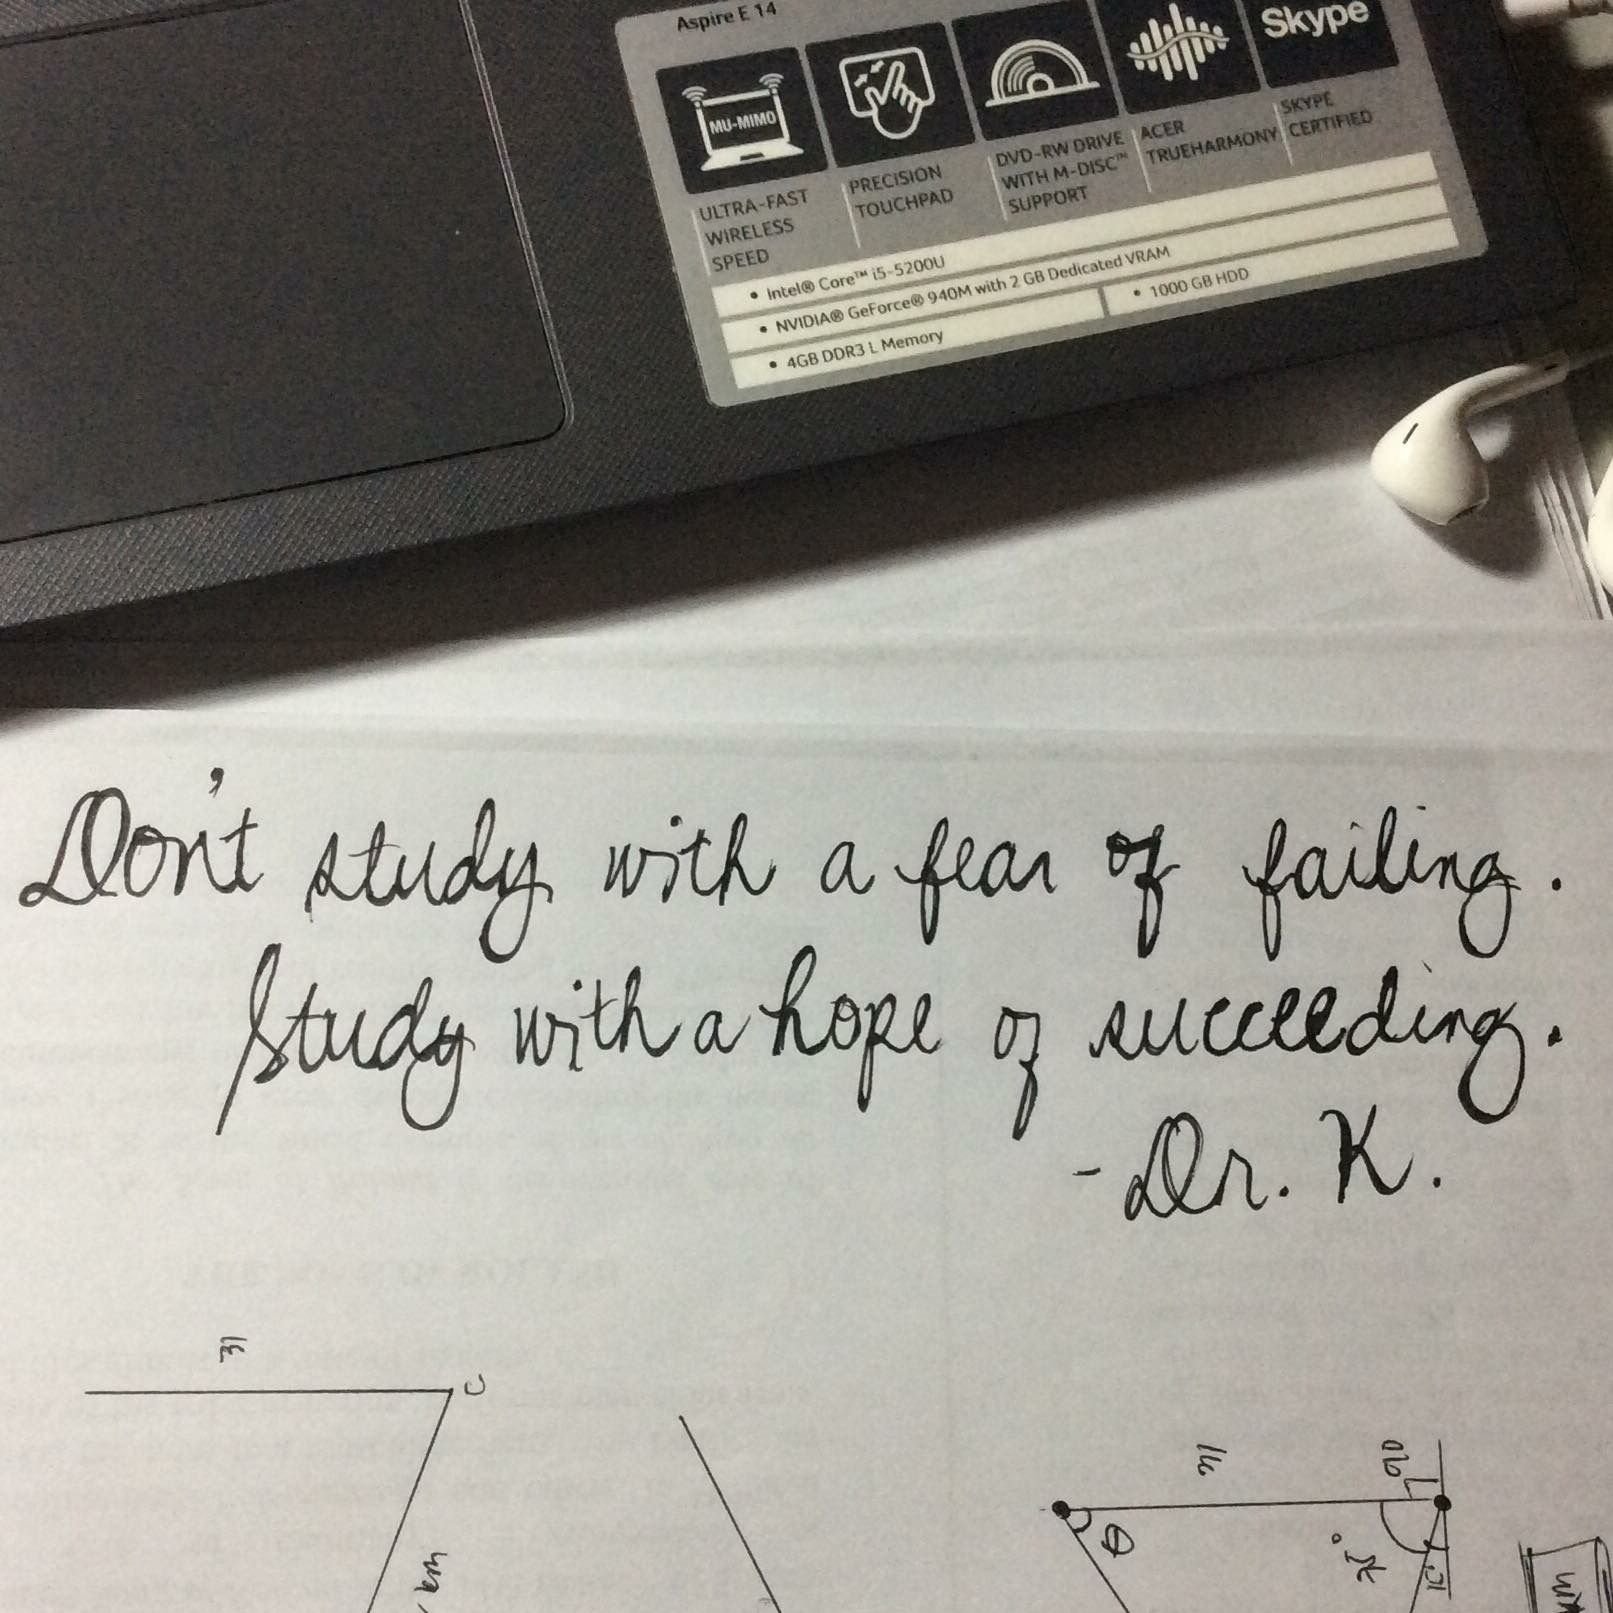 Aspire E 14
MU-MIMO
Skype
ULTRA-FAST
WIRELESS
SPEED
PRECISION
TOUCHPAD
DVD-RW DRIVE
WITH M-DISC™
SUPPORT
ACER
TRUEHARMONY
SKYPE
CERTIFIED
• Intel® Core™ i5-5200U
• NVIDIA® GeForce® 940M with 2 GB Dedicated VRAM
• 4GB DDR3 L Memory
• 1000 GB HDD
Don't study with a fear of failing.
Study with a hope of succeeding.
- Dr. K.
31
C
km
21
90
θ
75°
15°